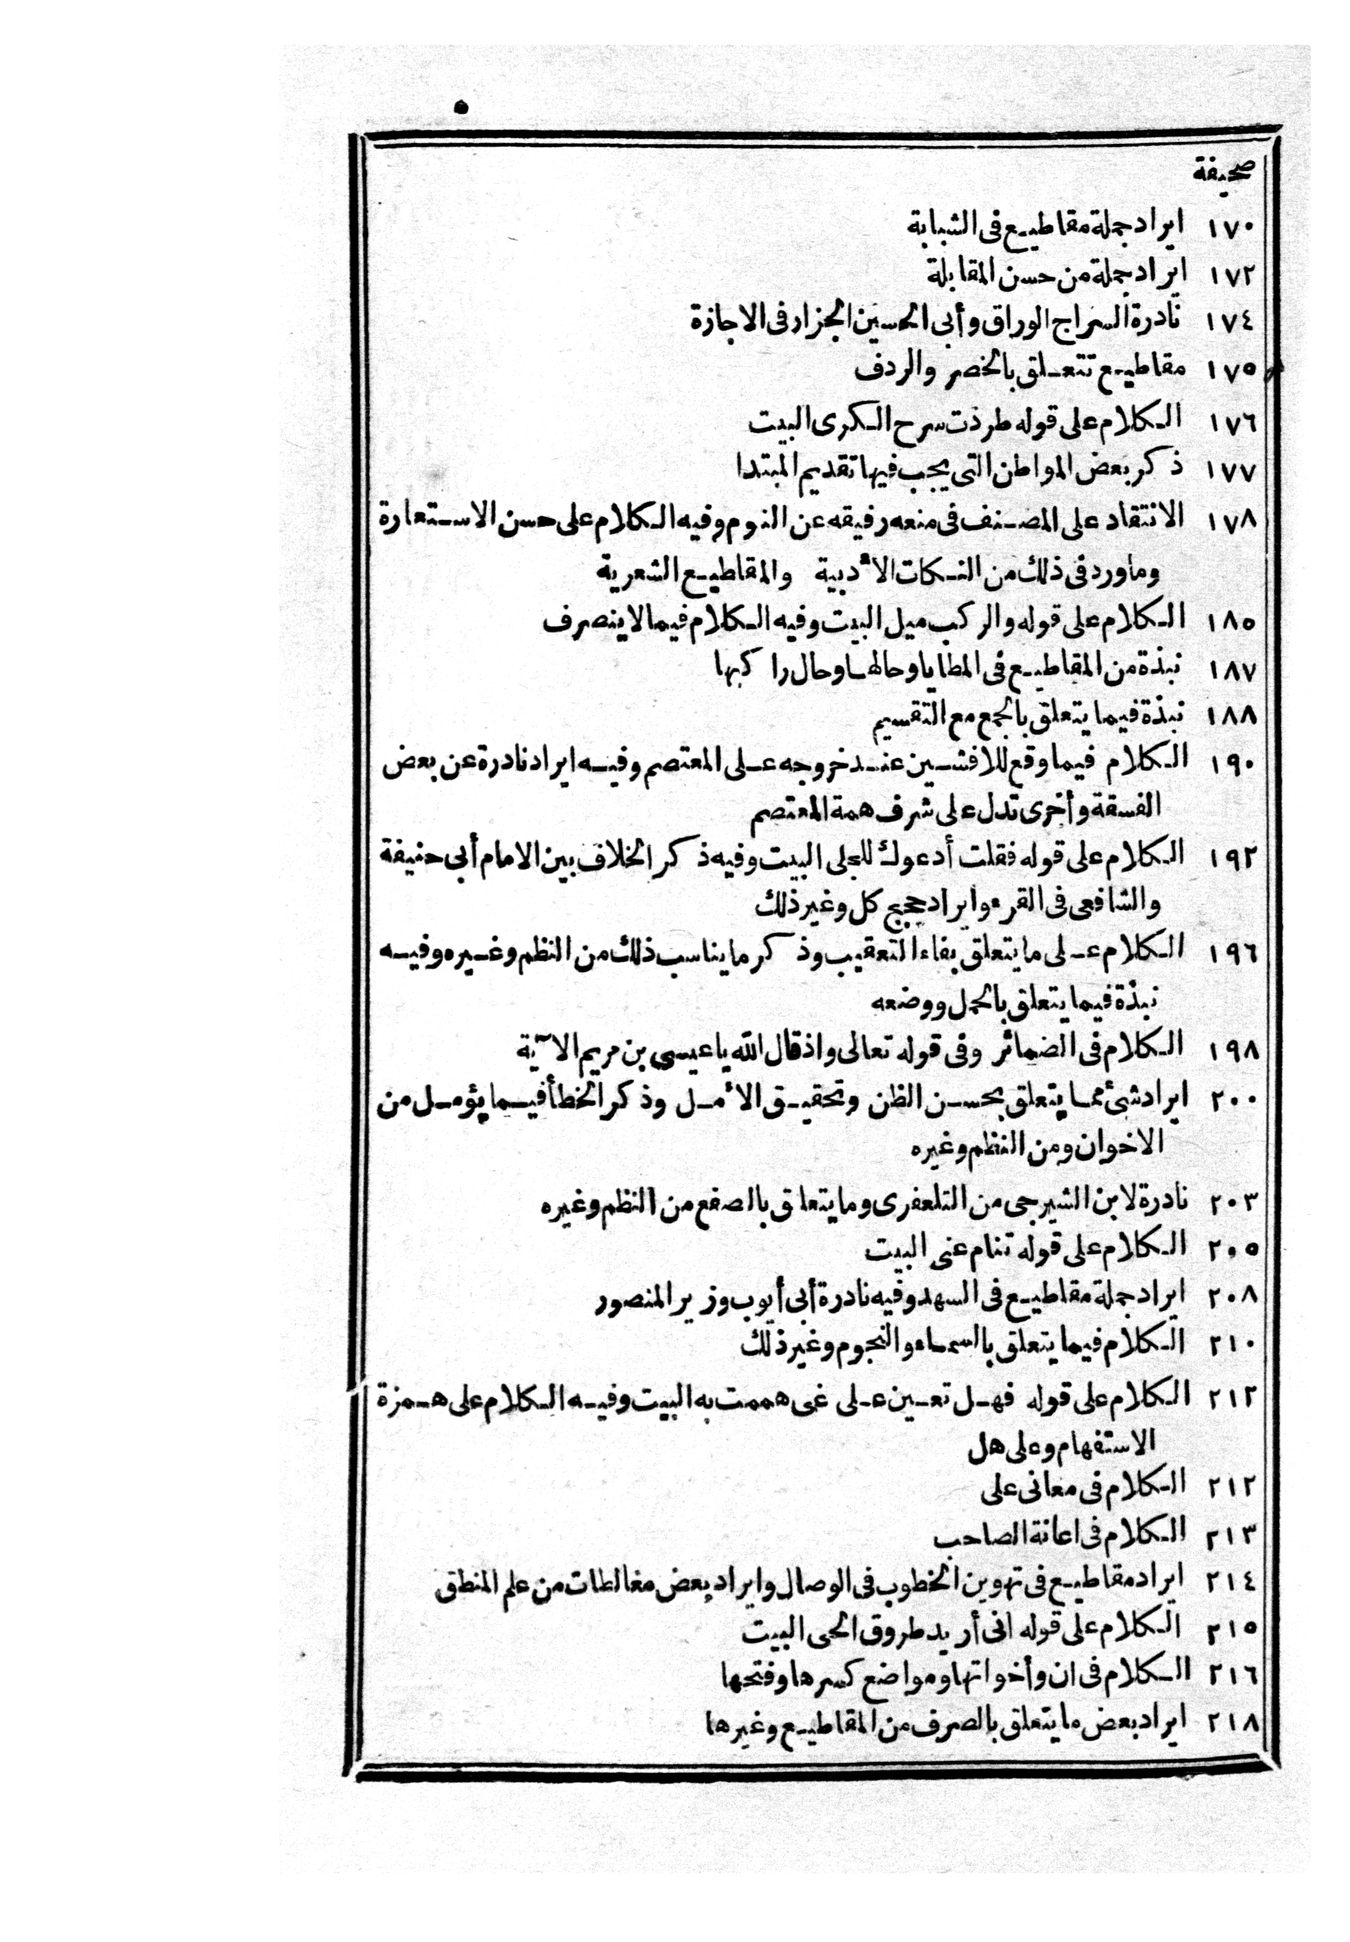 صحيفة
١٧٠ ايراد جملة مقاطيع فى الشبابة
١٧٢ ايراد جملة من حسن المقابلة
١٧٤ نادرة السراج الوراق وأبى الحسين الجزار فى الاجازة
١٧٥ مقاطيع تتعلق بالخصر والردف
١٧٦ الكلام على قوله طردت سرح الكرى البيت
١٧٧ ذكر بعض المواطن التى يجب فيها تقديم المبتدا
١٧٨ الانتقاد على المصنف فى منعه رفيقه عن النوم وفيه الكلام على حسن الاستعارة
وماورد فى ذلك من النكات الأدبية والمقاطيع الشعرية
١٨٥ الكلام على قوله والركب ميل البيت وفيه الكلام فيما لا ينصرف
١٨٧ نبذة من المقاطيع فى المطايا وحالها وحال راكبها
١٨٨ نبذة فيما يتعلق بالجمع مع التقسيم
١٩٠ الكلام فيما وقع للافشين عند خروجه على المعتصم وفيه ايراد نادرة عن بعض
الفسقة وأخرى تدل على شرف همة المعتصم
١٩٢ الكلام على قوله فقلت أدعوك للجلى البيت وفيه ذكر الخلاف بين الامام أبى حنيفة
والشافعى فى القرء وايراد حجج كل وغير ذلك
١٩٦ الكلام على ما يتعلق بفاء التعقيب وذكر ما يناسب ذلك من النظم وغيره وفيه
نبذة فيما يتعلق بالحمل ووضعه
١٩٨ الكلام فى الضمائر وفى قوله تعالى واذ قال الله يا عيسى بن مريم الآية
٢٠٠ ايراد شئ مما يتعلق بحسن الظن وتحقيق الأمل وذكر الخطأ فيما يؤمل من
الاخوان ومن النظم وغيره
٢٠٣ نادرة لابن الشيرجى من التلعفرى وما يتعلق بالصفع من النظم وغيره
٢٠٥ الكلام على قوله تنام عنى البيت
٢٠٨ ايراد جملة مقاطيع فى السهد وفيه نادرة أبى أيوب وزير المنصور
٢١٠ الكلام فيما يتعلق بالسماء والنجوم وغير ذلك
٢١٢ الكلام على قوله فهل تعين على غى هممت به البيت وفيه الكلام على همزة
الاستفهام وعلى هل
٢١٢ الكلام فى معانى على
٢١٣ الكلام فى اعانة الصاحب
٢١٤ ايراد مقاطيع فى تهوين الخطوب فى الوصال وايراد بعض مغالطات من علم المنطق
٢١٥ الكلام على قوله انى أريد طروق الحى البيت
٢١٦ الكلام فى ان وأخواتها ومواضع كسرها وفتحها
٢١٨ ايراد بعض ما يتعلق بالصرف من المقاطيع وغيرها